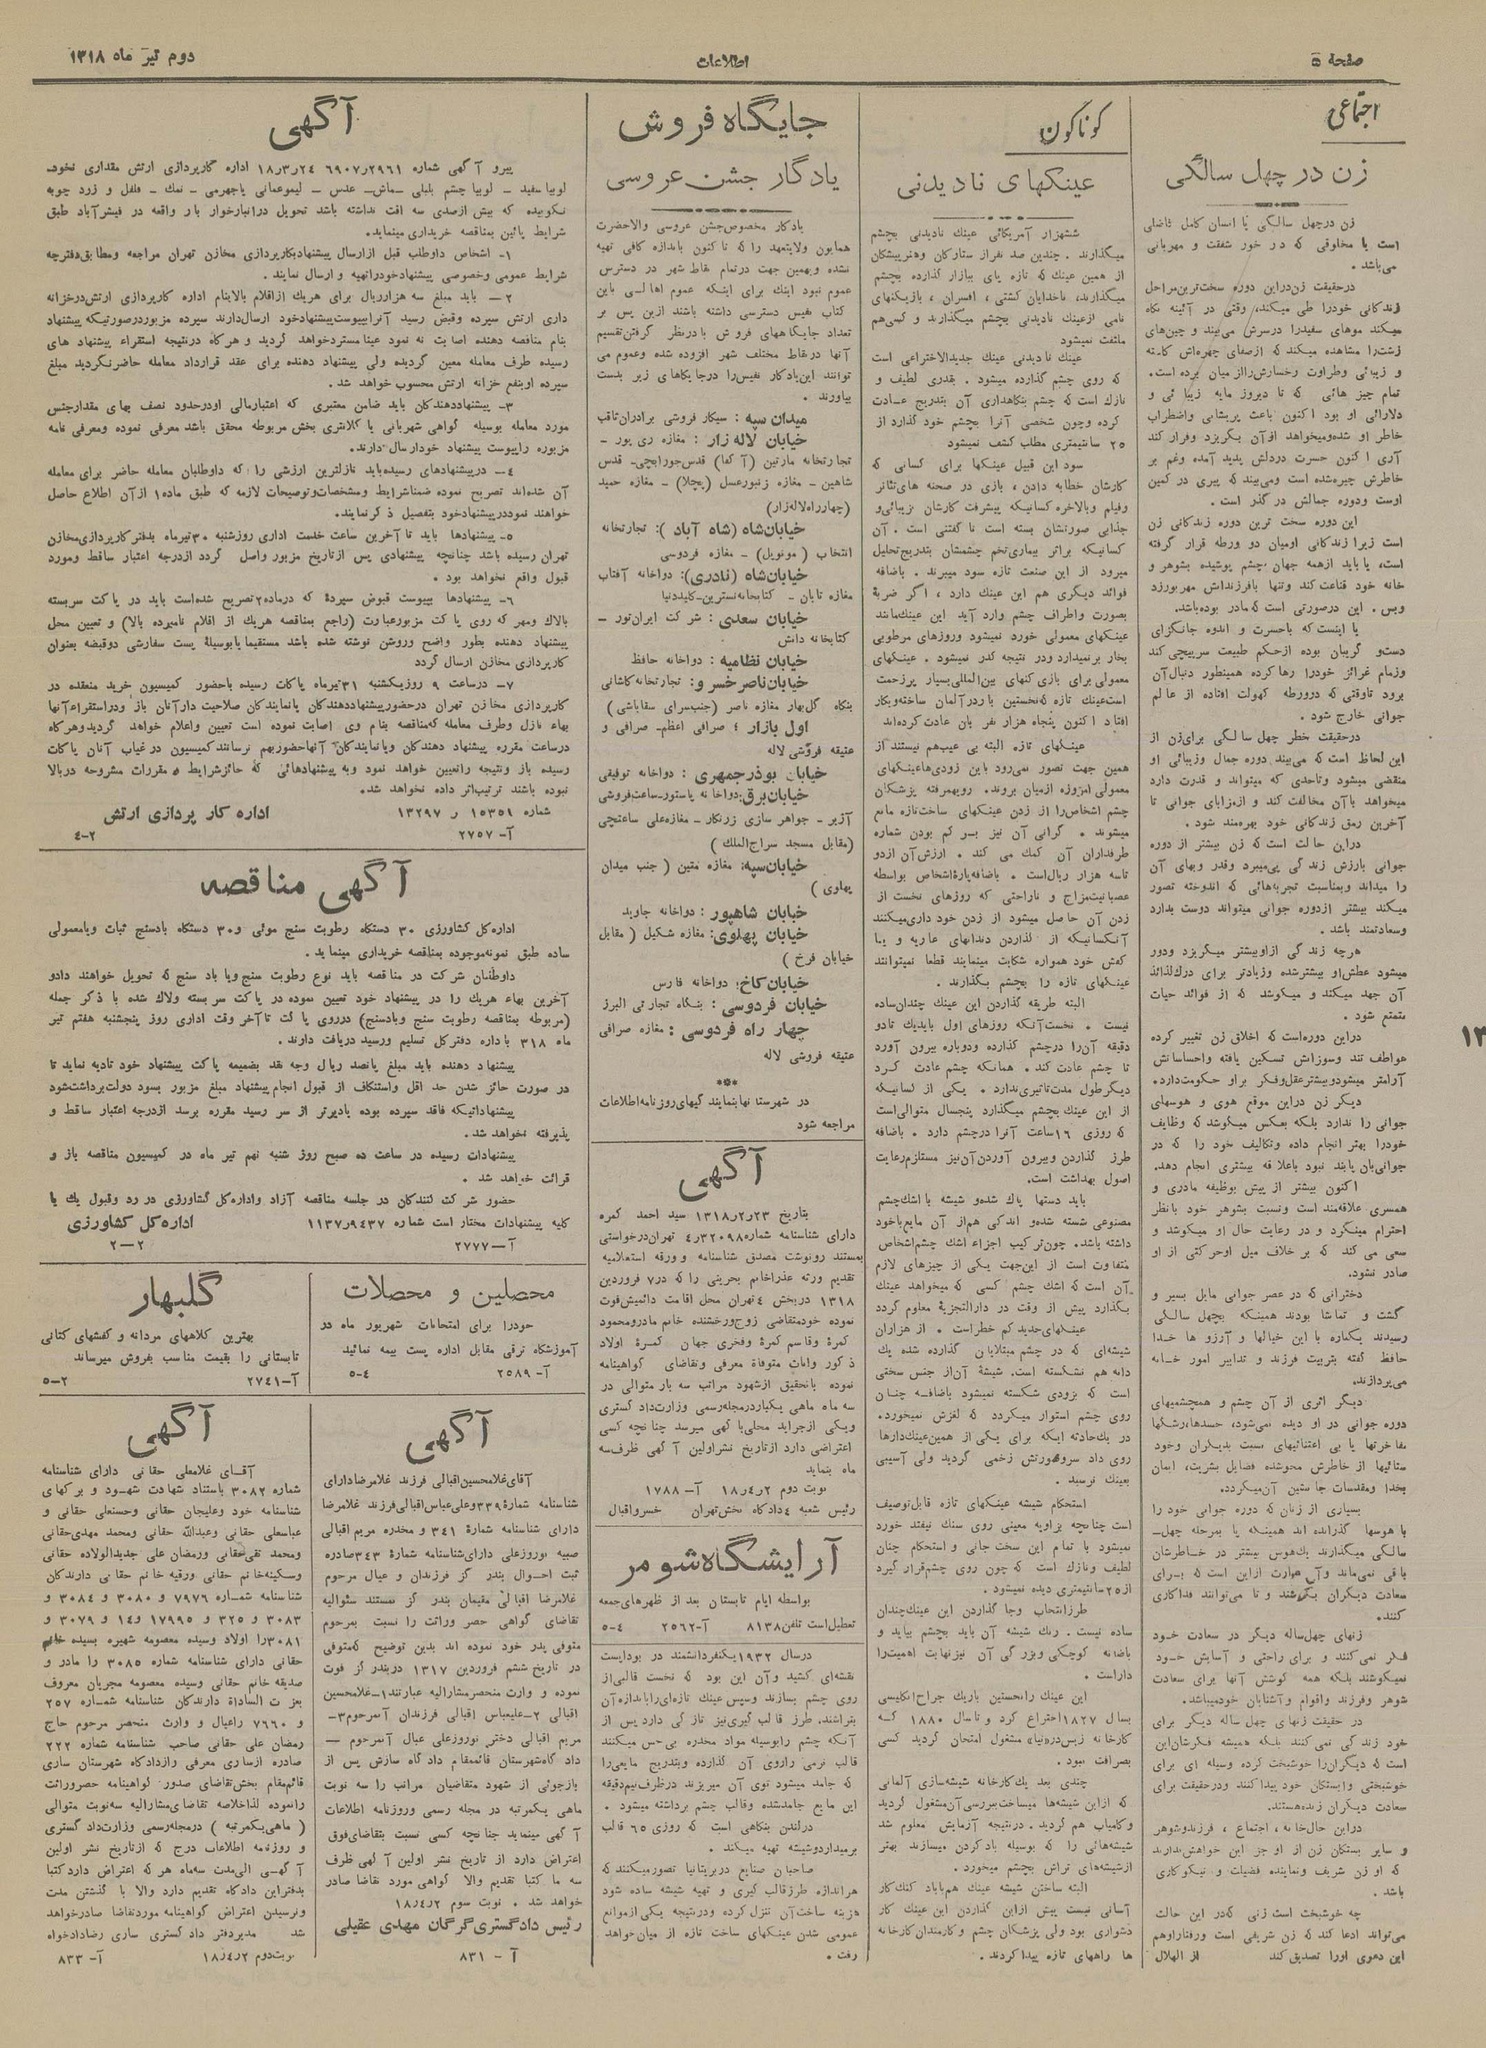 صفحه ۵
اطلاعات
دوم تیر ماه ۱۳۱۸
اجتماعی
زن در چهل سالگی
زن درچهل سالگی یا انسان کامل فاضلی
است یا مخلوقی که در خور شفقت و مهربانی
می‌باشد .
درحقیقت زن‌دراین دوره سخت‌ترین‌مراحل
زندگانی خودرا طی میکند، وقتی در آئینه نگاه
میکند موهای سفیدرا درسرش می‌بیند و چین‌های
زشت‌را مشاهده میکند که ازصفای چهره‌اش کاسته
و زیبائی وطراوت رخسارش‌راازمیان برده است.
تمام چیز هائی که تا دیروز مایه زیبا ئی و
دلارائی او بود اکنون باعث پریشانی واضطراب
خاطر او شده‌ومیخواهد ازآن بگریزد وفرار کند
آری اکنون حسرت دردلش پدید آمده وغم بر
خاطرش چیره‌شده است ومی‌بیند که پیری در کمین
اوست ودوره جمالش در گذر است .
این دوره سخت ترین دوره زندگانی زن
است زیرا زندگانی اومیان دو ورطه قرار گرفته
است، یا باید ازهمه جهان چشم پوشیده بشوهر و
خانه خود قناعت کند وتنها بافرزنداش مهربورزد
وبس . این درصورتی است که مادر بوده‌باشد.
یا اینست که باحسرت و اندوه جانگزای
دست‌و گریبان بوده ازحکم طبیعت سرپیچی کند
وزمام غرائز خودرا رها کرده همینطور دنبال‌آن
برود تاوقتی که درورطه کهولت افتاده از عالم
جوانی خارج شود .
درحقیقت خطر چهل سا لگی برای‌زن از
این لحاظ است که می‌بیند دوره جمال وزیبائی او
منقضی میشود وتاحدی که میتواند و قدرت دارد
میخواهد باآن مخالفت کند و ازمزایای جوانی تا
آخرین رمق زندگانی خود بهره‌مند شود .
دراین حالت است که زن بیشتر از دوره
جوانی بارزش زند گی پی‌میبرد وقدر وبهای آن
را میداند وبمناسبت تجربه‌هائی که اندوخته تصور
میکند بیشتر ازدوره جوانی میتواند دوست بدارد
وسعادتمند باشد .
هرچه زند گی ازاوبیشتر میگریزد ودور
میشود عطش‌او بیشترشده وزیادتر برای درك‌لذائذ
آن جهد میکند و میکوشد که از فوائد حیات
متمتع شود .
دراین دوره‌است که اخلاق زن تغییر کرده
عواطف تند وسوزاش تسکین یافته واحساسانش
آرامتر میشودوبیشترعقل‌وفکر براو حکومت‌دارد.
دیگر زن دراین موقع هوی و هوسهای
جوانی را ندارد بلکه بعکس میکوشد که وظایف
خودرا بهتر انجام داده وتکالیف خود را که در
جوانی‌بان پابند نبود باعلاقه بیشتری انجام دهد.
اکنون بیشتر از پیش بوظیفه مادری و
همسری علاقه‌مند است ونسبت بشوهر خود بانظر
احترام مینگرد و در رعایت حال او میکوشد و
سعی می کند که بر خلاف میل اوحرکتی از او
صادر نشود.
دخترانی که در عصر جوانی مایل بسیر و
گشت و تماشا بودند همینکه بچهل سالگی
رسیدند یکباره با این خیالها و آرزو ها خدا
حافظ گفته بتربیت فرزند و تدابیر امور خانه
می‌پردازند.
دیگر اثری از آن چشم و همچشمیهای
دوره جوانی در او دیده نمی‌شود، حسدها،رشکها
بسیاری از زنان که دوره جوانی خود را
زنهای چهل‌ساله دیگر در سعادت خود
فکر نمی کنند و برای راحتی و آسایش خود
نمیکوشند بلکه همه کوشش آنها برای سعادت
شوهر وفرزند واقوام وآشنایان خودمیباشد.
در حقیقت زنهای چهل ساله دیگر برای
خود زندگی نمی کنند بلکه همیشه فکرشان‌این
است که دیگران‌را خوشبخت کرده وسیله ای برای
خوشبختی وابستگان خود پیدا کنند ودرحقیقت برای
سعادت دیگران زنده‌هستند.
دراین حال‌خانه ، اجتماع ، فرزندوشوهر
و سایر بستگان زن از او جز این خواهش‌ندارند
که او زن شریف ونماینده فضیلت و نیکوکاری
باشد .
چه خوشبخت است زنی که‌در این حالت
می‌تواند ادعا کند که زن شریفی است ورفتاراوهم
این دعوی اورا تصدیق کند از الهلال
گوناگون
عینکهای نادیدنی
ششهزار آمریکائی عینك نادیدنی بچشم
میگذارند . چندین صد نفراز ستارگان وهنرپیشگان
از همین عینك که تازه پای ببازار گذارده بچشم
میگذارند، ناخدایان کشتی ، افسران ، بازیکنهای
نامی ازعینك نادیدنی بچشم میگذارند و کسی‌هم
ملتفت نمیشود
عینك نادیدنی عینك جدیدالاختراعی است
که روی چشم گذارده میشود . بقدری لطیف و
نازك است که چشم بنگاهداری آن بتدریج عادت
کرده وچون شخصی آنرا بچشم خود گذارد از
۲۵ سانتیمتری مطلب کشف نمیشود
سود این قبیل عینکها برای کسانی که
کارشان خطابه دادن ، بازی در صحنه های‌تئاتر
وفیلم وبالاخره کسانیکه پیشرفت کارشان بزیبائی‌و
جذابی صورتشان بسته است نا گفتنی است . آن
کسانیکه براثر بیماری‌تخم چشمشان بتدریج‌تحلیل
میرود از این صنعت تازه سود میبرند . باضافه
فوائد دیگری هم این عینك دارد ، اگر ضربهٔ
بصورت واطراف چشم وارد آید این عینك‌مانند
عینکهای معمولی خورد نمیشود وروزهای مرطوبی
بخار برنمیدارد ودر نتیجه کدر نمیشود . عینکهای
معمولی برای بازی کنهای بین‌المللی بسیار پرزحمت
است‌عینك تازه که‌نخستین باردرآلمان ساخته‌وبکار
افتاد اکنون پنجاه هزار نفر بان عادت کرده‌اند
عینکهای تازه البته بی عیب‌هم نیستند از
همین جهت تصور نمی‌رود باین زودی‌هاعینکهای
معمولی امروزه ازمیان بروند. رویهمرفته پزشکان
چشم اشخاص‌را از زدن عینکهای ساخت‌تازه مانع
میشوند . گرانی آن نیز بر کم بودن شماره
طرفداران آن کمك می کند . ارزش‌آن ازدو
تاسه هزار ریال‌است . باضافه‌پارهٔ‌اشخاص بواسطه
عصبانیت‌مزاج و ناراحتی که روزهای نخست از
زدن آن حاصل میشود از زدن خود داری‌میکنند
آنکسانیکه از گذاردن دندانهای عاریه و یا
کفش خود همواره شکایت مینمایند قطعا نمیتوانند
عینکهای تازه را بچشم بگذارند .
البته طریقه گذاردن این عینك چندان‌ساده
نیست . نخست‌آنکه روزهای اول بایدیك تادو
دقیقه آن‌را درچشم گذارده ودوباره بیرون آورد
تا چشم عادت کند . همانکه چشم عادت کرد
دیگرطول مدت‌تاثیری‌ندارد . یکی از کسانیکه
از این عینك بچشم میگذارد پنجسال متوالی‌است
که روزی ۱۶ساعت آنرا درچشم دارد . باضافه
طرز گذاردن وبیرون آوردن آن‌نیز مستلزم‌رعایت
اصول بهداشت است.
باید دستها پاك شده‌و شیشه با اشك‌چشم
مصنوعی شسته شده‌و اندکی هم‌از آن مایع‌باخود
داشته باشد. چون‌ترکیب اجزاء اشك چشم‌اشخاص
متفاوت است از این‌جهت یکی از چیزهای لازم
آن است که اشك چشم کسی که میخواهد عینك
بگذارد پیش از وقت در دارالتجزیهٔ معلوم گردد
عینکهای جدید کم خطراست . از هزاران
شیشه‌ای که در چشم مبتلایان گذارده شده یك
دانه هم نشکسته است. شیشهٔ آن‌از جنس سختی
است که بزودی شکسته نمیشود باضافه چنان
روی چشم استوار میگردد که لغزش نمیخورد.
در یك‌حادثه ایکه برای یکی از همین‌عینك‌دارها
روی داد سروصورتش زخمی گردید ولی آسیبی
بعینك نرسید.
استحکام شیشه عینکهای تازه قابل‌توصیف
است چنانچه بزاویه معینی روی سنك نیفتد خورد
نمیشود با تمام این سخت جانی و استحکام چنان
لطیف ونازك است که چون روی چشم‌قرار گیرد
از۲۵سانتیمتری دیده نمیشود .
طرزانتخاب وجا گذاردن این عینك‌چندان
ساده نیست . رنك شیشه آن باید بچشم بیاید و
باضافه کوچکی وبزر گی آن نیزنهایت اهمیت‌را
داراست .
این عینك رانخستین باریك جراح‌انگلیسی
بسال ۱۸۲۷اختراع کرد و تاسال ۱۸۸۰ که
کارخانه زیس‌درینا» مشغول امتحان گردید کسی
بصرافت نبود.
چندی بعد یك‌کارخانه شیشه‌سازی آلمانی
که ازاین شیشه‌ها میساخت‌بررسی‌آن‌مشغول گردید
وکامیاب هم گردید. درنتیجه آزمایش معلوم شد
شیشه‌هائی را که بوسیله بادکردن میسازند بهتر
ازشیشه‌های تراش بچشم میخورد .
البته ساختن شیشه عینك هم‌باباد کنك‌کار
آسانی نیست پیش ازاین گذاردن این عینك کار
دشواری بود ولی پزشکان چشم و کارمندان‌کارخانه
ها راههای تازه پیدا کردند .
جایگاه فروش
یادگار جشن عروسی
یادگار مخصوص‌جشن عروسی والاحضرت
همایون ولایتعهد را که تا کنون باندازه کافی تهیه
نشده وبهمین جهت درتمام نقاط شهر در دسترس
عموم نبود اینك برای اینکه عموم اهالی باین
کتاب نفیس دسترسی داشته باشند ازین پس بر
تعداد جایگاههای فروش بادرنظر گرفتن‌تقسیم
آنها درنقاط مختلف شهر افزوده شده وعموم می
توانند این‌یادگار نفیس‌را درجایگاهای زیر بدست
بیاورند .
میدان سپه : سیگار فروشی برادران‌ثاقب
خیابان لاله زار : مغازه ری پور -
تجارتخانه مارتین (آ کفا) قدس‌جورابچی- قدس
شاهین - مغازه زنبورعسل (پچلا) - مغازه حمید
(چهارراه‌لاله‌زار)
خیابان‌شاه (شاه آباد ): تجارتخانه
انتخاب (مونوپل) - مغازه فردوسی
خیابان‌شاه (نادری): دواخانه آفتاب
مغازه تابان - کتابخانه‌نسترین-کلیددنیا
خیابان سعدی : شرکت ایران‌تور -
کتابخانه دانش
خیابان نظامیه : دواخانه حافظ
خیابان‌ناصرخسرو: تجارتخانه‌کاشانی
بنگاه گل‌بهار مغازه ناصر (جنب‌سرای سقاباشی)
اول بازار : صرافی اعظم- صرافی و
عتیقه فروشی لاله
خیابان بوذرجمهری : دواخانه توفیقی
خیابان‌برق:دواخانه پاستور-ساعت‌فروشی
آژیر - جواهر سازی زرنگار - مغازه‌علی ساعتچی
(مقابل مسجد سراج‌الملك )
خیابان‌سپه: مغازه متین ( جنب میدان
پهلوی )
خیابان شاهپور : دواخانه جاوید
خیابان پهلوی: مغازه شکیل ( مقابل
خیابان فرخ )
خیابان‌کاخ: دواخانه فارس
خیابان فردوسی : بنگاه تجارتی البرز
چهار راه فردوسی : مغازه صرافی
عتیقه فروشی لاله
***
در شهرستا نها‌بنمایند گیهای‌روزنامه‌اطلاعات
مراجعه شود
آگهی
بتاریخ ۲۳ر۲ر۱۳۱۸ سید احمد کمره
دارای شناسنامه شماره۳۲۰۹۸ر۴ تهران‌درخواستی
بمستند رونوشت مصدق شناسنامه و ورقه استعلامیه
تقدیم ورثه عذراخانم بحرینی را که در۷ فروردین
۱۳۱۸ دربخش ۴تهران محل اقامت دائمیش‌فوت
نموده خودمتقاضی زوج‌ورخشنده خانم مادرومحمود
کمرهٔ وقاسم کمرهٔ وفخری جهان کمرهٔ اولاد
ذکور واناث متوفاة معرفی وتقاضای گواهینامه
نموده باتحقیق ازشهود مراتب سه بار متوالی در
سه ماه ماهی یکباردرمجله‌رسمی وزارت‌داد گستری
ویکی ازجراید محلی‌با گهی میرسد چنانچه کسی
اعتراضی دارد ازتاریخ نشراولین آ گهی ظرف‌سه
ماه بنماید
نوبت دوم ۲ر۴ر۱۸ آ- ۱۷۸۸
رئیس شعبه ۴دادگاه بخش‌تهران خسرواقبال
آرایشگاه شومر
بواسطه ایام تابستان بعد از ظهرهای‌جمعه
تعطیل‌است تلفن۸۱۳۸ آ-۲۵۶۲ ۴-۵
درسال ۱۹۳۲یکنفردانشمند در بوداپست
نقشه‌ای کشید وآن این بود که نخست قالبی‌از
روی چشم بسازند وسپس عینك تازه‌ای‌راباندازه‌آن
بتراشند. طرز قالب گیری‌نیز تازگی دارد پس از
آنکه چشم رابوسیله مواد مخدره بی‌حس میکنند
قالب نرمی راروی آن گذارده وبتدریج مایعی‌را
که جامد میشود توی آن میریزند درظرف‌نیم‌دقیقه
این مایع جامدشده وقالب چشم برداشته میشود .
درلندن بنگاهی است که روزی ۶۵ قالب
برمیداردوشیشه تهیه میکند .
صاحبان صنایع دربریتانیا تصورمیکنند که
هراندازه طرزقالب گیری و تهیه شیشه ساده شود
هزینه ساخت‌آن تنزل کرده ودرنتیجه یکی‌ازموانع
عمومی شدن عینکهای ساخت تازه از میان‌خواهد
رفت .
آگهی
پیرو آ گهی شماره ۲۹۶۱ر۶۹۰۷ ۲۴ر۳ر۱۸ اداره کارپردازی ارتش مقداری نخود-
لوبیاسفید - لوبیا چشم بلبلی -ماش- عدس - لیموعمانی یاجهرمی - نمك - فلفل و زرد چوبه
نکوبیده که بیش ازصدی سه افت نداشته باشد تحویل درانبارخوار بار واقعه در فیشرآباد طبق
شرایط پائین بمناقصه خریداری مینماید.
۱- اشخاص داوطلب قبل ازارسال پیشنهادبکارپردازی مخازن تهران مراجعه ومطابق‌دفترچه
شرایط عمومی وخصوصی پیشنهادخودراتهیه و ارسال نمایند .
۲- باید مبلغ سه هزارریال برای هریك ازاقلام بالابنام اداره کارپردازی ارتش‌درخزانه
داری ارتش سپرده وقبض رسید آنراپیوست‌پیشنهادخود ارسال‌دارند سپرده مزبوردرصورتیکه پیشنهاد
بنام مناقصه دهنده اصابت نه نمود عینا مسترد‌خواهد گردید و هرگاه درنتیجه استقراء پیشنهاد های
رسیده طرف معامله معین گردیده ولی پیشنهاد دهنده برای عقد قرارداد معامله حاضرنگردید مبلغ
سپرده اوبنفع خزانه ارتش محسوب خواهد شد .
۳- پیشنهاددهندگان باید ضامن معتبری که اعتبارمالی اودرحدود نصف بهای مقدارجنس
مورد معامله بوسیله گواهی شهربانی یا کلانتری بخش مربوطه محقق باشد معرفی نموده ومعرفی نامه
مزبوره راپیوست پیشنهاد خودارسال‌دارند.
۴- درپیشنهادهای رسیده‌باید نازلترین ارزشی را که داوطلبان معامله حاضر برای معامله
آن شده‌اند تصریح نموده ضمناشرایط ومشخصات‌وتوضیحات لازمه که طبق ماده۱ ازآن اطلاع حاصل
خواهند نموددرپیشنهادخود بتفصیل ذکرنمایند.
۵- پیشنهادها باید تاآخرین ساعت خدمت اداری روزشنبه ۳۰تیرماه بدفترکارپردازی‌مخازن
تهران رسیده باشد چنانچه پیشنهادی پس ازتاریخ مزبور واصل گردد ازدرجه اعتبار ساقط ومورد
قبول واقع نخواهد بود .
۶- پیشنهادها بپیوست قبوض سپردهٔ که درماده۲تصریح شده‌است باید در پاکت سربسته
بالاك ومهر که روی پا کت مزبورعبارت (راجع بمناقصه هریك از اقلام نامبرده بالا) و تعیین محل
پیشنهاد دهنده بطور واضح وروشن نوشته شده باشد مستقیما یابوسیلهٔ پست سفارشی دوقبضه بعنوان
کارپردازی مخازن ارسال گردد
۷- درساعت ۹ روزیکشنبه ۳۱تیرماه پاکات رسیده باحضور کمیسیون خرید منعقده در
کارپردازی مخازن تهران درحضورپیشنهاددهندگان یانمایندگان صلاحیت دارآنان باز ودراستقراءآنها
بهاء نازل وطرف معامله که‌مناقصه بنام وی اصابت نموده است تعیین واعلام خواهد گردیدوهرگاه
درساعت مقرره پیشنهاد دهندگان ویانمایندگان آنهاحضوربهم نرسانندکمیسیون‌درغیاب آنان پاکات
رسیده باز ونتیجه راتعیین خواهد نمود وبه پیشنهادهائی که حائزشرایط و مقررات مشروحه دربالا
نبوده باشند ترتیب‌اثر داده نخواهد شد.
شماره ۱۵۳۵۱ ر ۱۳۲۹۷ اداره کار پردازی ارتش
آ- ۲۷۵۷ ۴-۲
آگهی مناقصه
اداره‌کل کشاورزی ۳۰ دستگاه رطوبت سنج موئی و۳۰ دستگاه بادسنج ثبات ویامعمولی
ساده طبق نمونه‌موجوده بمناقصه خریداری مینماید .
داوطلبان شرکت در مناقصه باید نوع رطوبت سنج ویا باد سنج که تحویل خواهند دادو
آخرین بهاء هریك را در پیشنهاد خود تعیین نموده در پاکت سر بسته ولاك شده با ذکر جمله
(مربوطه بمناقصه رطوبت سنج وبادسنج) درروی پا کت تاآخر وقت اداری روز پنجشنبه هفتم تیر
ماه ۳۱۸ باداره دفترکل تسلیم ورسید دریافت دارند .
پیشنهاد دهنده باید مبلغ پانصد ریال وجه نقد بضمیمه پاکت پیشنهاد خود تادیه نماید تا
در صورت حائز شدن حد اقل واستنکاف از قبول انجام‌پیشنهاد مبلغ مزبور بسود دولت‌برداشت‌شود
پیشنهاداتیکه فاقد سپرده بوده یادیرتر از سر رسید مقرره برسد ازدرجه اعتبار ساقط و
پذیرفته نخواهد شد.
پیشنهادات رسیده در ساعت ده صبح روز شنبه نهم تیر ماه در کمیسیون مناقصه باز و
قرائت خواهد شد .
حضور شرکت کنندگان در جلسه مناقصه آزاد واداره‌کل کشاورزی در رد وقبول یك یا
کلیه پیشنهادات مختار است شماره ۹۴۳۷ر۱۱۳۷ اداره‌کل کشاورزی
آ-۲۷۷۷ ۲-۲
محصلین و محصلات
خودرا برای امتحانات شهریور ماه در
آموزشگاه ترقی مقابل اداره پست بیمه نمائید
آ- ۲۵۸۹ ۴-۵
گلبهار
بهترین کلاههای مردانه و کفشهای کتانی
تابستانی را بقیمت مناسب بفروش میرساند
آ-۲۷۴۱ ۲-۵
آگهی
آقای غلامحسین‌اقبالی فرزند غلامرضادارای
شناسنامه شمارهٔ ۳۳۹وعلی‌عباس اقبالی‌فرزند غلامرضا
دارای شناسنامه شمارهٔ ۳۴۱ و مخدره مریم اقبالی
صبیه نوروزعلی دارای‌شناسنامه شمارهٔ ۳۴۳صادره
ثبت احوال بندر گز فرزندان و عیال مرحوم
غلامرضا اقبالی مقیمان بندر گز بمستند سئوالیه
تقاضای گواهی حصر وراثت را نسبت بمرحوم
متوفی پدر خود نموده اند بدین توضیح که‌متوفی
در تاریخ ششم فروردین ۱۳۱۷ دربندر گز فوت
نموده و وارث منحصرمشارالیه عبارتند۱-غلامحسین
اقبالی ۲-علیعباس اقبالی فرزندان آنمرحوم۳-
مریم اقبالی دختر نوروزعلی عیال آنمرحوم -
داد گاه‌شهرستان قائممقام داد گاه سازش پس از
بازجوئی از شهود متقاضیان مراتب را سه نوبت
ماهی یکمرتبه در مجله رسمی وروزنامه اطلاعات
آ گهی مینماید چنانچه کسی نسبت بتقاضای‌فوق
اعتراض دارد از تاریخ نشر اولین آ گهی ظرف
سه ما کتبا تقدیم والا گواهی مورد تقاضا صادر
خواهد شد . نوبت سوم ۲ر۴ر۱۸
رئیس دادگستری گرگان مهدی عقیلی
آ - ۸۳۱
آگهی
آقای غلامعلی حقانی دارای شناسنامه
شماره ۳۰۸۲ باستناد شهادت شهود و برگهای
شناسنامه خود وعلیجان حقانی وحسنعلی حقانی و
عباسعلی حقانی وعبدالله حقانی ومحمد مهدی‌حقانی
ومحمد تقی‌حقانی ورمضان علی جدیدالولاده حقانی
وسکینه‌خانم حقانی ورقیه خانم حقانی دارندگان
شناسنامه شماره ۷۹۷۶ و ۳۰۸۰ و ۳۰۸۴ و
۳۰۸۳ و ۳۲۵ و ۱۷۹۹۵ و۱۴ و ۳۰۷۹ و
۳۰۸۱را اولاد وسیده معصومه شهیره بسیده خانم
حقانی دارای شناسنامه شماره ۳۰۸۵ را مادر و
صدیقه خانم حقانی وسیده معصومه مجریان معروف
بعزت السادات دارندگان شناسنامه شماره ۲۵۷
و ۷۶۶۰ راعیال و وارث منحصر مرحوم حاج
رمضان علی حقانی صاحب شناسنامه شماره ۲۲۲
صادره ازساری معرفی وازدادگاه شهرستان ساری
قائم‌مقام بخش‌تقاضای صدور گواهینامه حصروراثت
رانموده لذاخلاصه تقاضای‌مشارالیه سه‌نوبت متوالی
( ماهی‌یکمرتبه ) درمجله‌رسمی وزارت‌داد گستری
و روزنامه اطلاعات درج که ازتاریخ نشر اولین
آ گهی الی‌مدت سه‌ماه هر که اعتراض دارد کتبا
بدفتراین دادگاه تقدیم دارد والا با گذشتن مدت
ونرسیدن اعتراض گواهینامه موردتقاضا صادرخواهد
شد مدیردفتر داد گستری ساری رضادادخواه
نوبت‌دوم ۲ر۴ر۱۸ آ- ۸۳۳